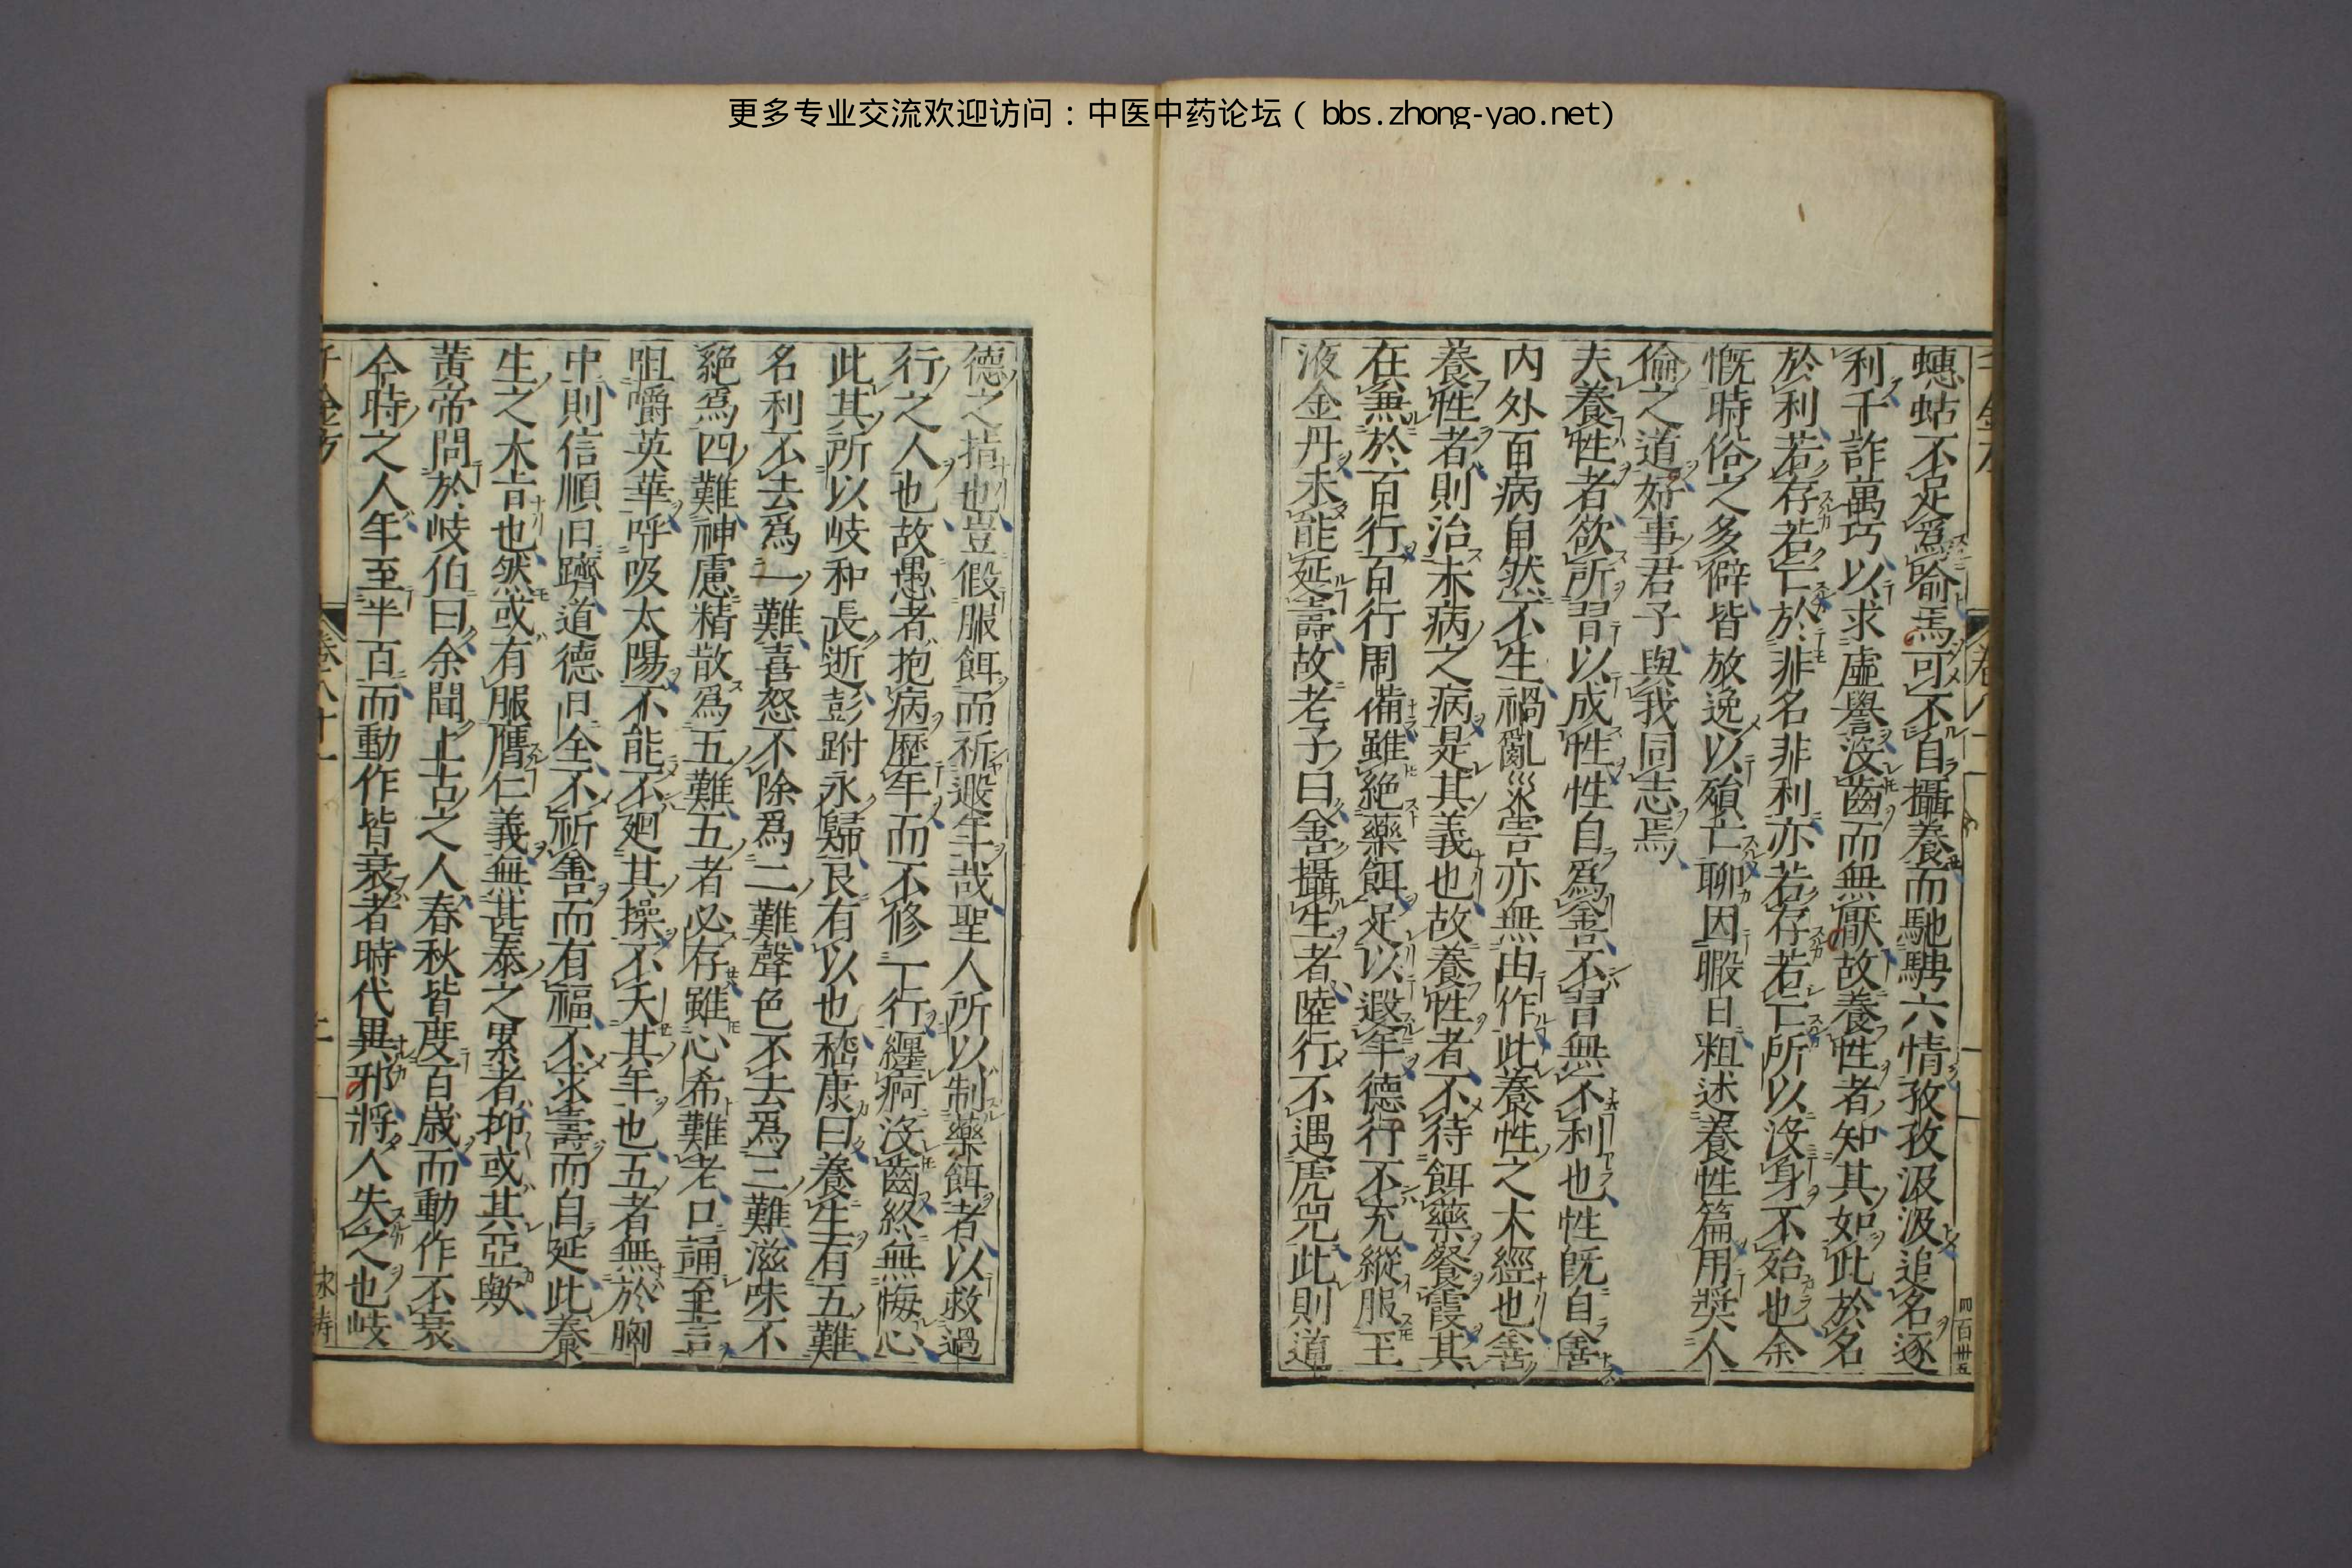 更多专业交流欢迎访问：中医中药论坛（ bbs.zhong-yao.net)
蟪蛄不足爲喻焉可不自攝養而馳騁六情孜孜汲汲追名逐
利千詐萬巧以求虛譽沒齒而無厭故養性者知其如此於名
於利若存若亡於非名非利亦若存若亡所以沒身不殆也余
慨時俗之多僻皆放逸以殞亡聊因暇日粗述養性篇用奬人
倫之道好事君子與我同志焉
夫養性者欲所習以成性性自爲善不習無不利也性既自善
内外百病自然不生禍亂災害亦無由作此養性之大經也善
養性者則治未病之病是其義也故養性者不待餌藥餐霞其
在兼於百行百行周備雖絶藥餌足以遐年德行不充縱服玉
液金丹未能延壽故老子曰善攝生者陸行不遇虎兕此則道
四百卅五
德之指也豈假服餌而祈遐年哉聖人所以制藥餌者以救過
行之人也故愚者抱病歷年而不修一行纏痾沒齒終無悔心
此其所以岐和長逝彭跗永歸良有以也嵇康曰養生有五難
名利不去爲一難喜怒不除爲二難聲色不去爲三難滋味不
絶爲四難神慮精散爲五難五者必存雖心希難老口誦至言
咀嚼英華呼吸太陽不能不廻其操不夭其年也五者無於胸
中則信順日躋道德日全不祈善而有福不求壽而自延此養
生之大旨也然或有服膺仁義無甚泰之累者抑或其亞歟
黃帝問於岐伯曰余聞上古之人春秋皆度百歲而動作不衰
今時之人年至半百而動作皆衰者時代異邪將人失之也岐
千金方 卷八十一 二